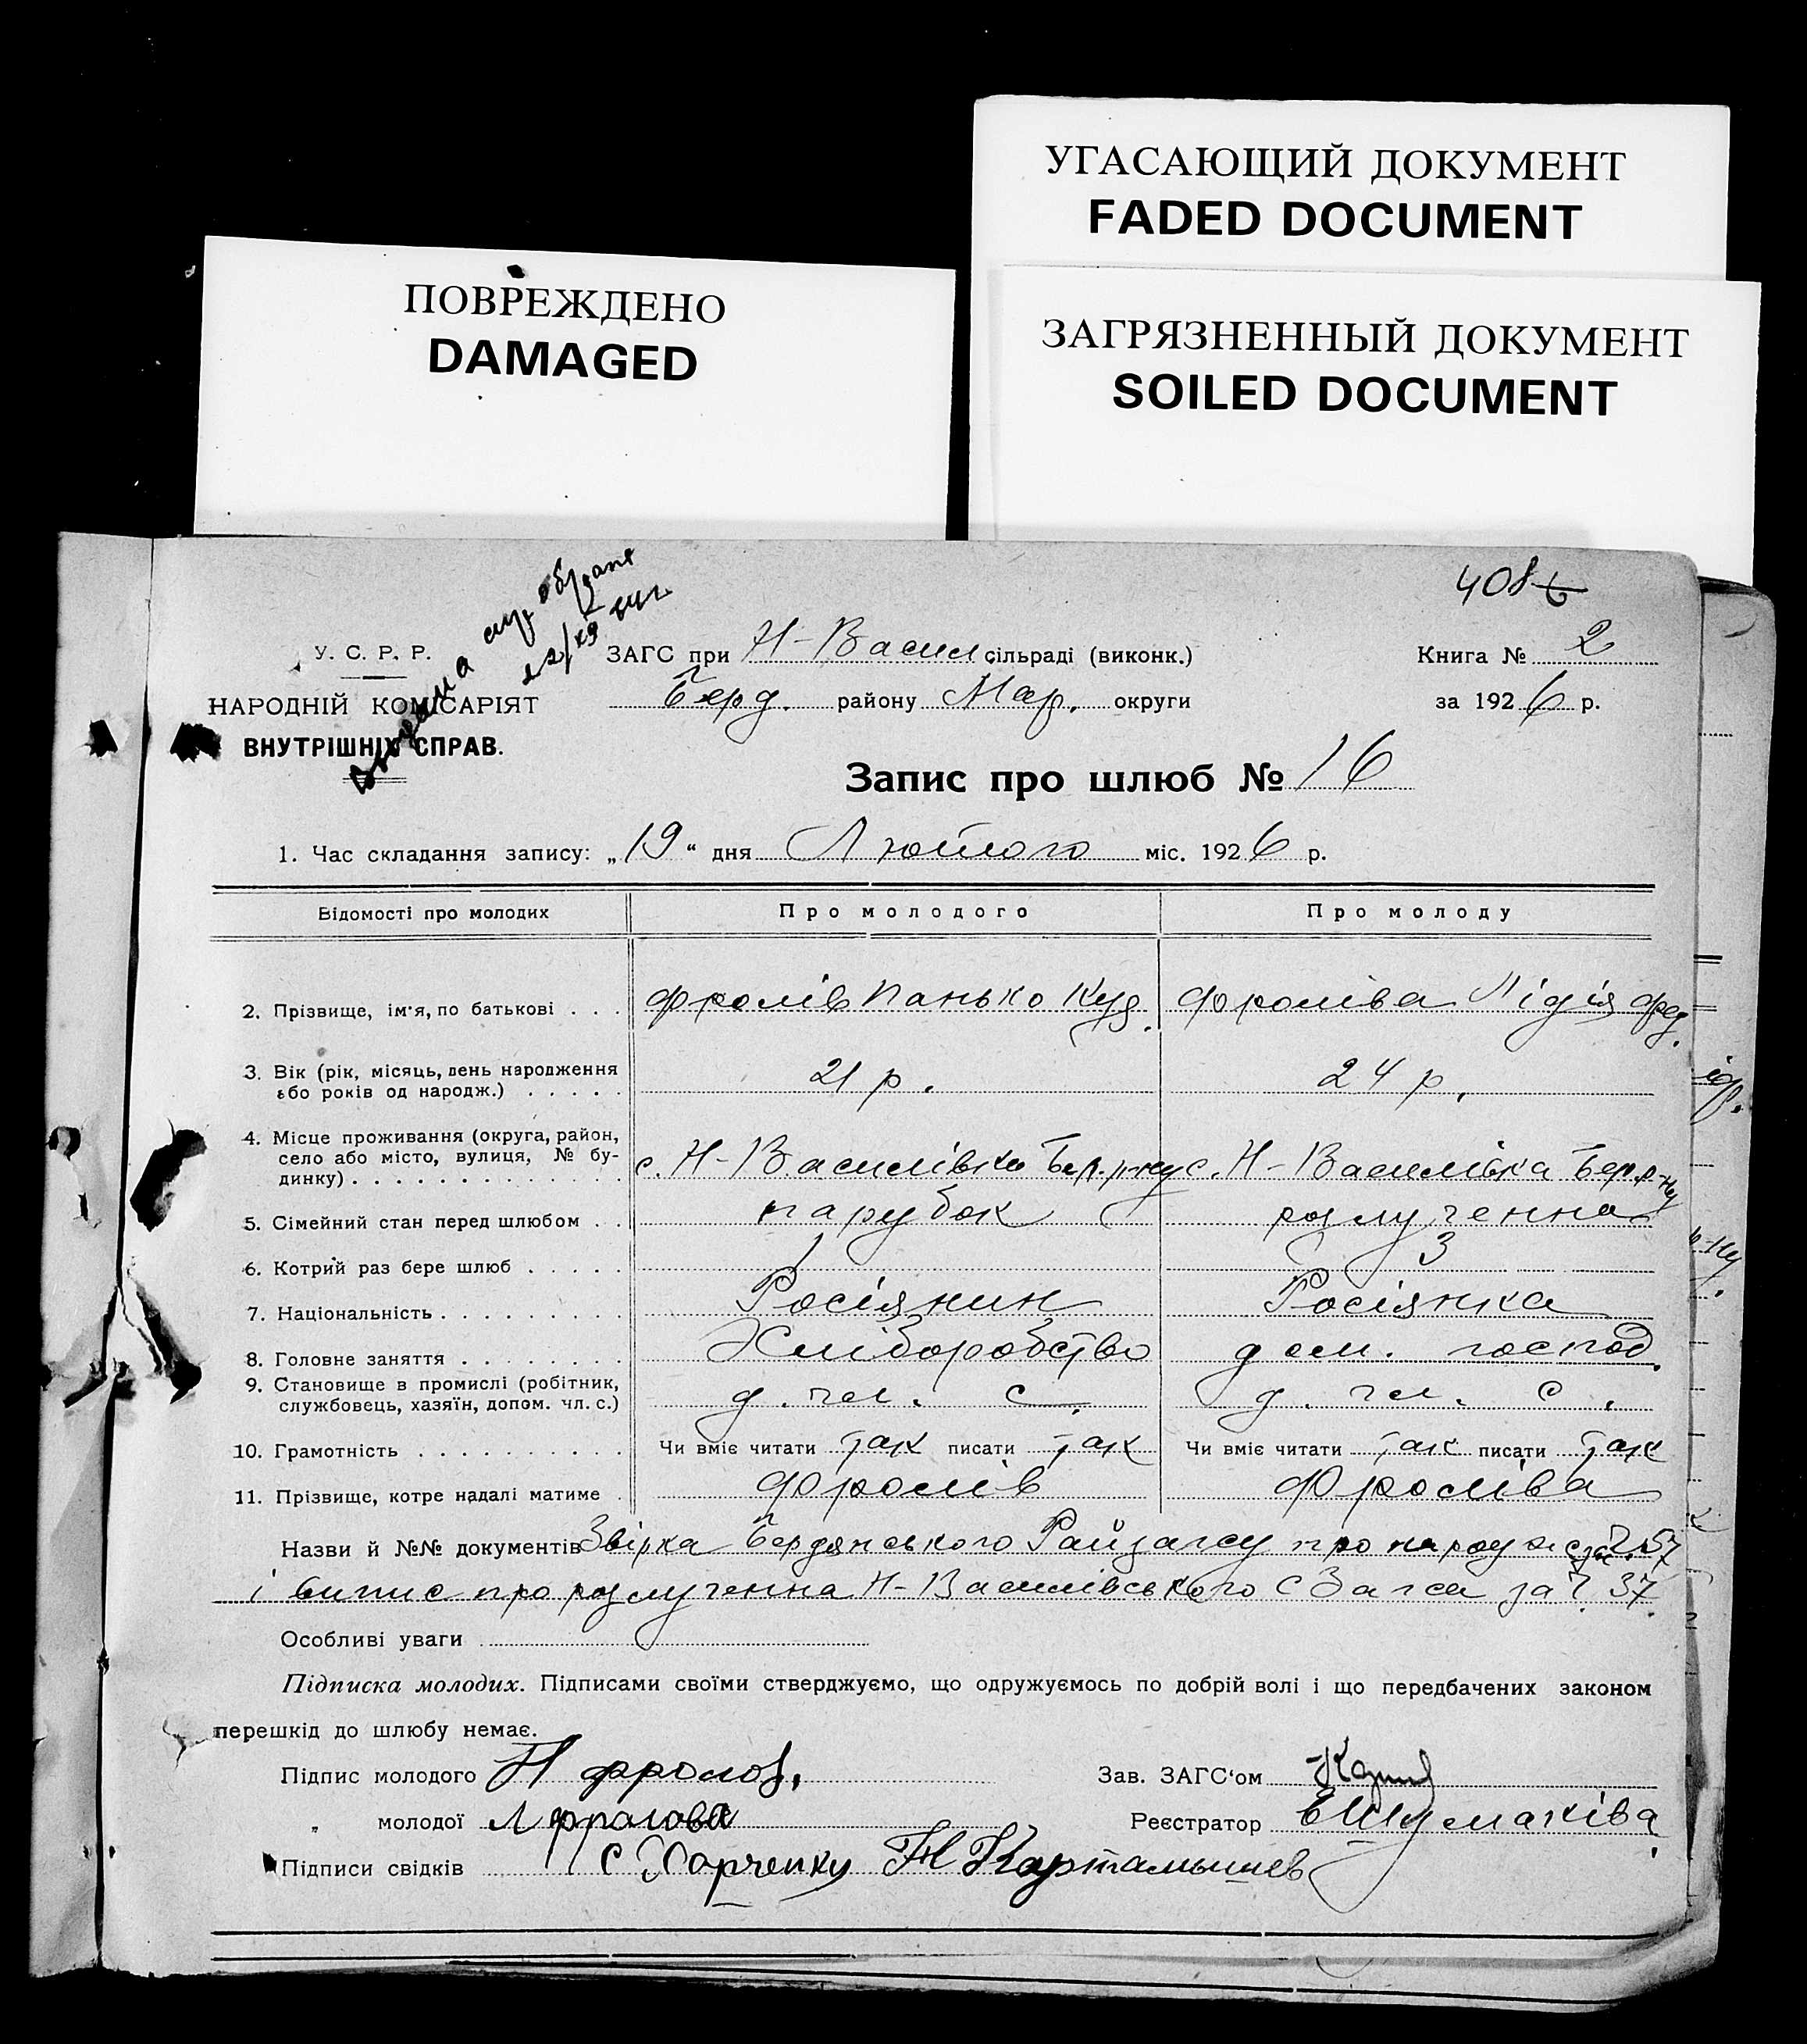 УГАСАЮЩИЙ ДОКУМЕНТ
FADED DOCUMENT
ПОВРЕЖДЕНО
DAMAGED
ЗАГРЯЗНЕННЫЙ ДОКУМЕНТ
SOILED DOCUMENT
408
У. С. Р. Р.
НАРОДНІЙ КОМІСАРІЯТ
ВНУТРІШНІХ СПРАВ.
ЗАГС при Н-Васил сільраді (виконк.)
Берд. району Мар. округи
Книга № 2
за 1926 р.
Запис про шлюб № 16
1. Час складання запису: „19“ дня Лютого міс. 1926 р.
Відомості про молодих Про молодого Про молоду
2. Прізвище, ім'я, по батькові . . . Фролів Панько Куз. Фролівa Лідія Фед.
3. Вік (рік, місяць, день народження
або років од народж.) . . . . . 21 р. 24 р.
4. Місце проживання (округа, район,
село або місто, вулиця, № бу-
динку) . . . . . . . . . . . . . с. Н-Василівка Бер. р-ну с. Н-Василівка Бер. р-ну
5. Сімейний стан перед шлюбом . . парубок розлученна
6. Котрий раз бере шлюб . . . . . 1 3
7. Національність . . . . . . . . . Росіянин Росіянка
8. Головне заняття . . . . . . . . Хліборобство дом. господ.
9. Становище в промислі (робітник,
службовець, хазяїн, допом. чл. с.) д. чл. с. д. чл. с.
10. Грамотність . . . . . . . . . . Чи вміє читати так писати так Чи вміє читати так писати так
11. Прізвище, котре надалі матиме . Фролів Фроліва
Назви й №№ документів Звірка Бердянського Райзагсу про народж за ч. 57
і випис про розлученна Н-Василівського СЗагса за ч. 37
Особливі уваги
Підписка молодих. Підписами своїми стверджуємо, що одружуємось по добрій волі і що передбачених законом
перешкід до шлюбу немає.
Підпис молодого П Фролов. Зав. ЗАГС'ом
„ молодої Л Фролова Реєстратор Е Шумаківа
Підписи свідків С Харченку Н Картамышев